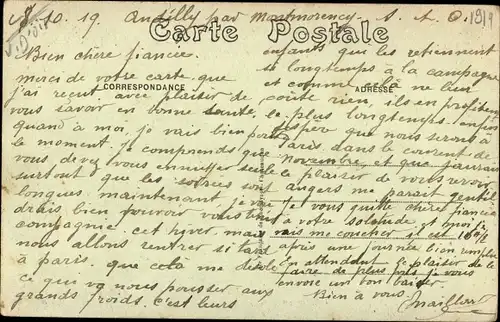 8.10.19 Andilly par Montmorency S. & O. 1919
Carte Postale
CORRESPONDANCE
ADRESSE
Bien chère fiancée
merci de votre carte que
j'ai reçut avec plaisir de
vous savoir en bonne santé,
quand à moi, je vais bien pour
le moment, je comprends que
vous devez vous ennuyer seule
surtout que les soirées sont
longues maintenant, je vou
drais bien pouvoir vous tenir
compagnie cet hiver mais
nous allons rentrer si tard
à paris, que cela me désole
ce qui va nous pousser aux
grands froids, c'est leurs
enfants que les retiennent
si longtemps à la campagne
et comme là ne leur
coûte rien, ils en profitent
le plus longtemps enfin
j'espère que nous seront à
Paris dans le courant de
novembre, et que j'aurais
le plaisir de vous revoir
angers me parait gentil
je vous quitte chère fiancée
à votre solitude et moi je
vais me coucher il est 10h 1/2
après une journée bien remplie
En attendant le plaisir de le
faire de plus près je vous
envoie un bon baiser.
Bien à vous